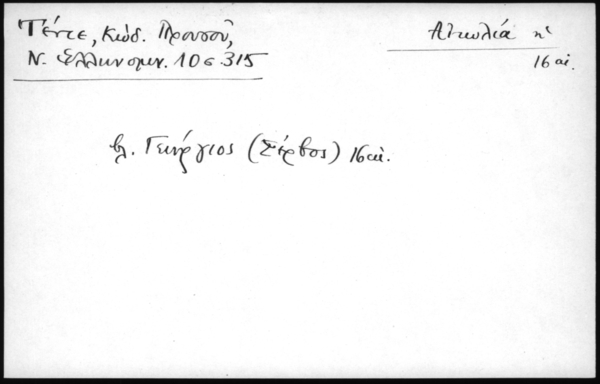 Τέντε, Κώδ. Προυσοῦ,
Ν. Ἑλληνομν. 10 σ 315
Αἰτωλία κ'
16 αἰ.
βλ. Γεώργιος (Σέρβος) 16 αἰ.